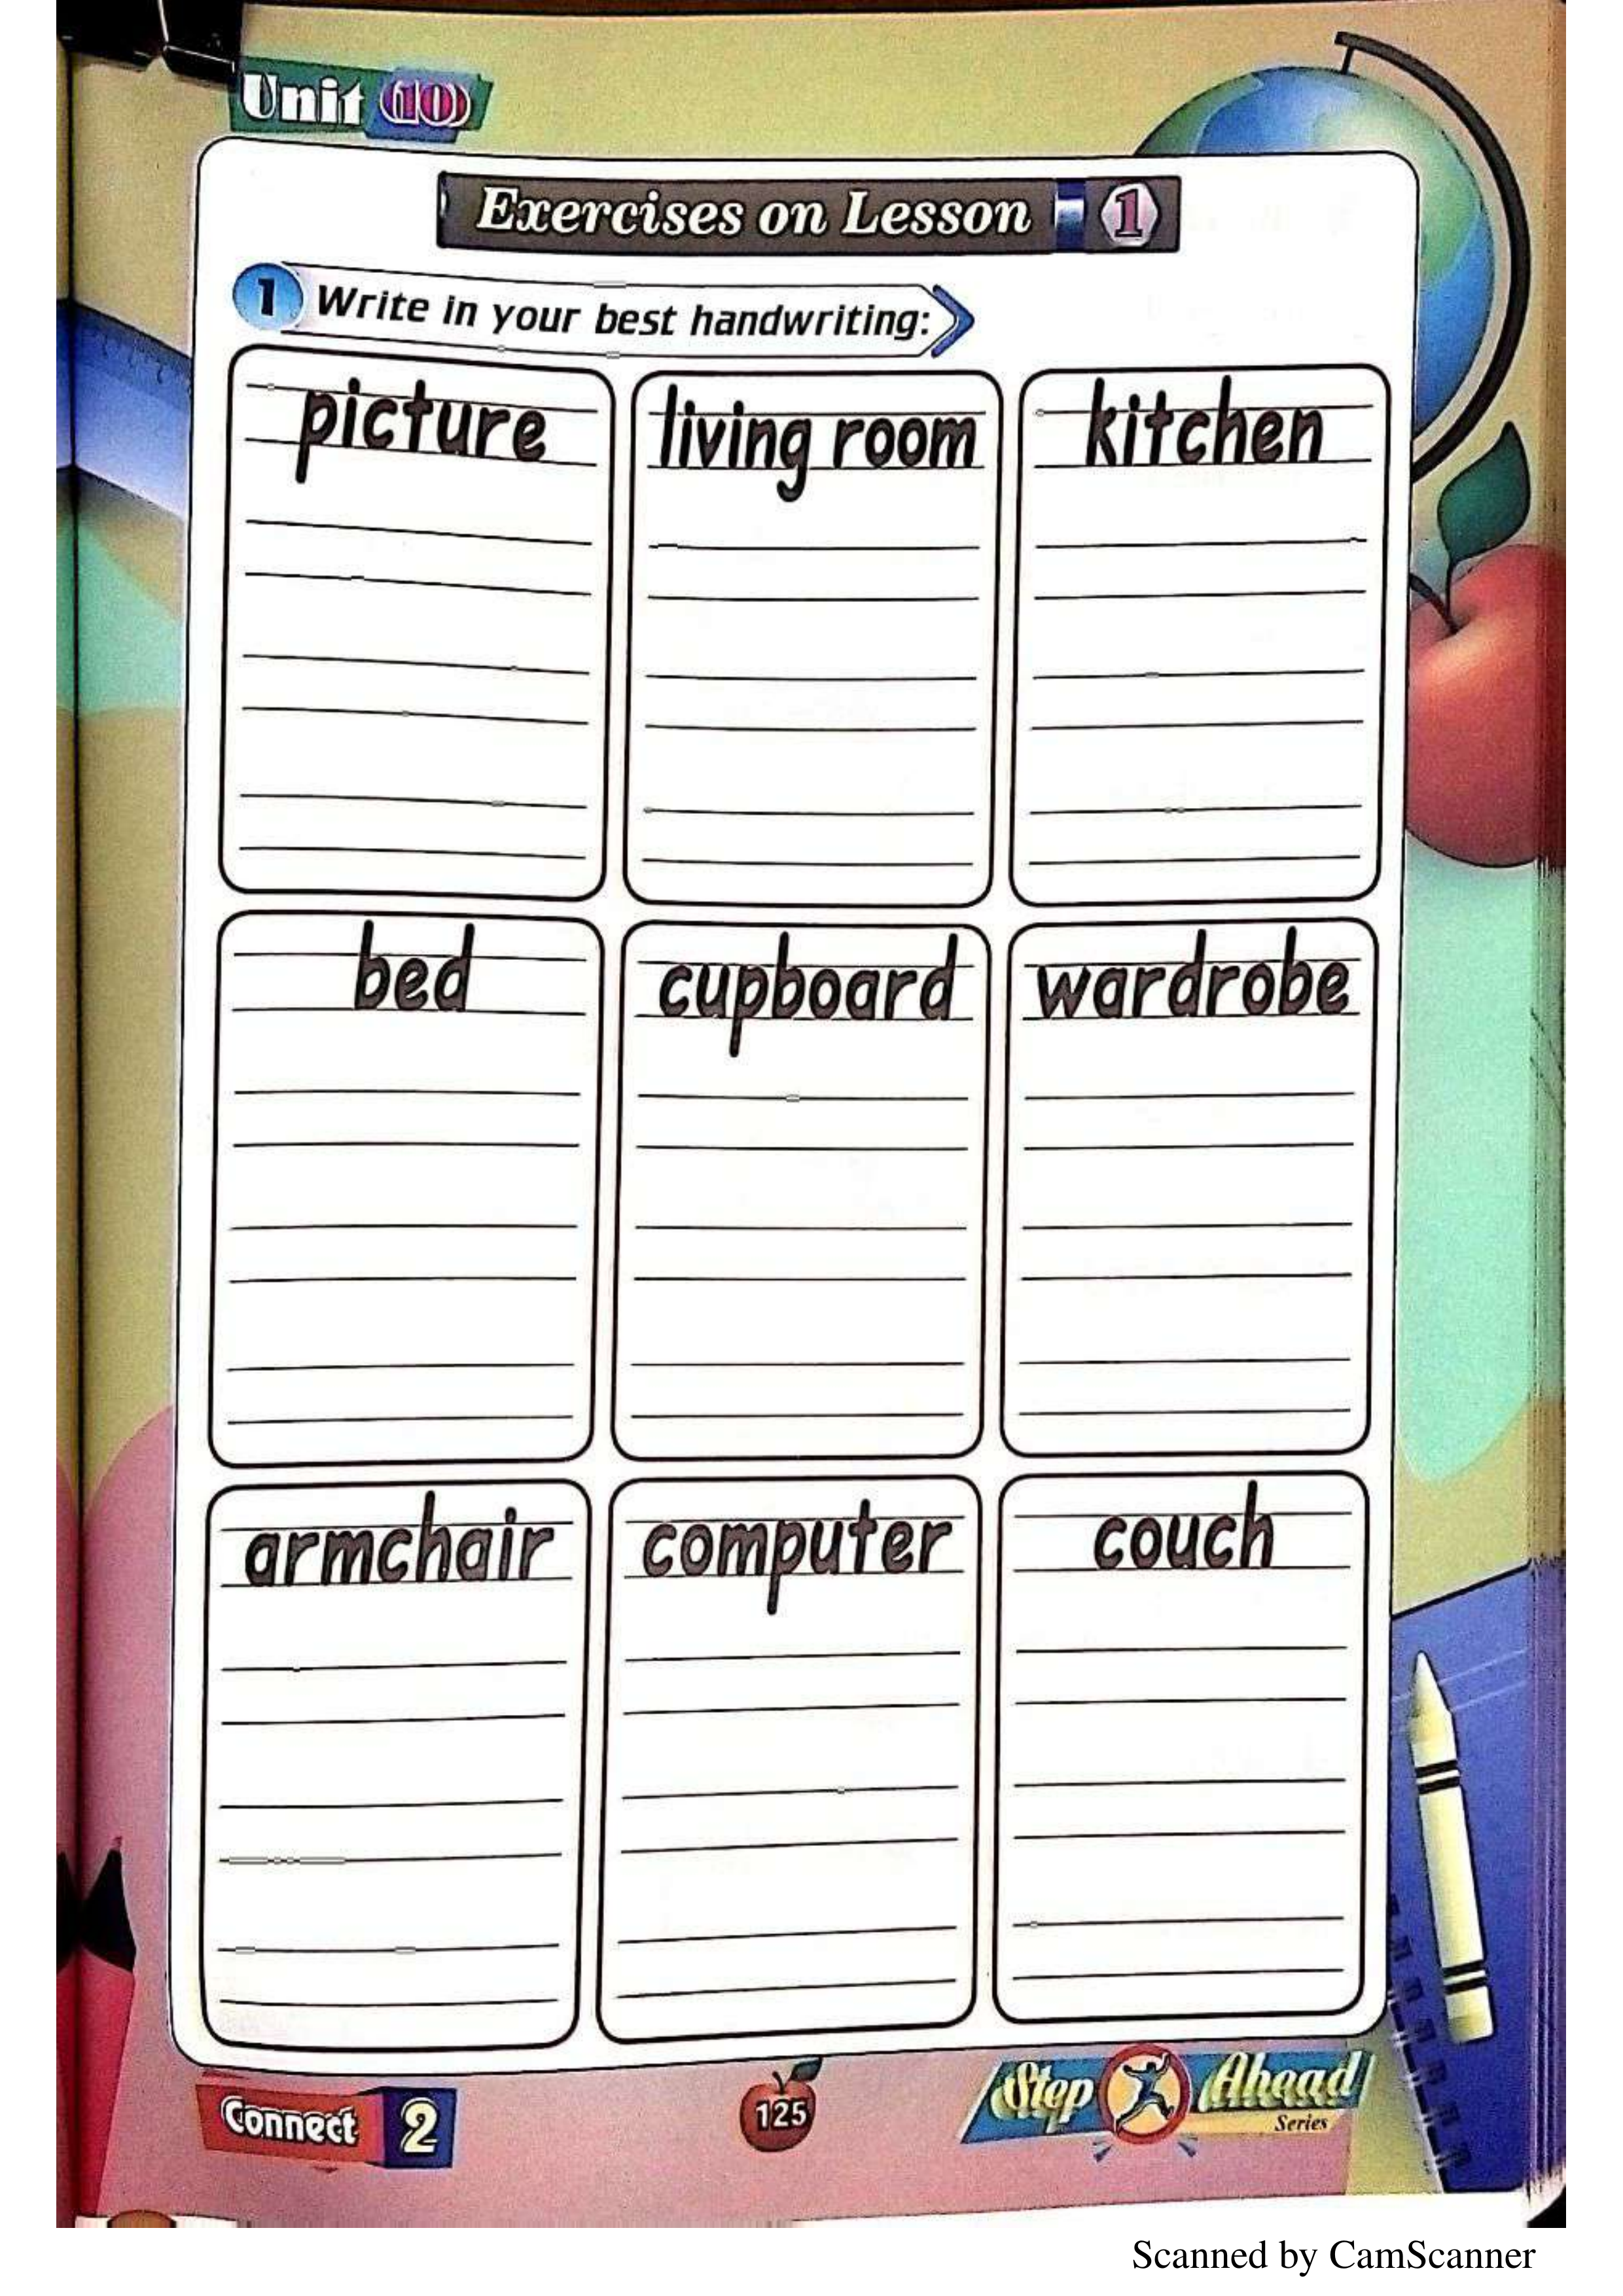 Unit 10
Exercises on Lesson 1
1 Write in your best handwriting:
picture living room kitchen
bed cupboard wardrobe
armchair computer couch
Connect 2
125
Step Ahead
Series
Scanned by CamScanner